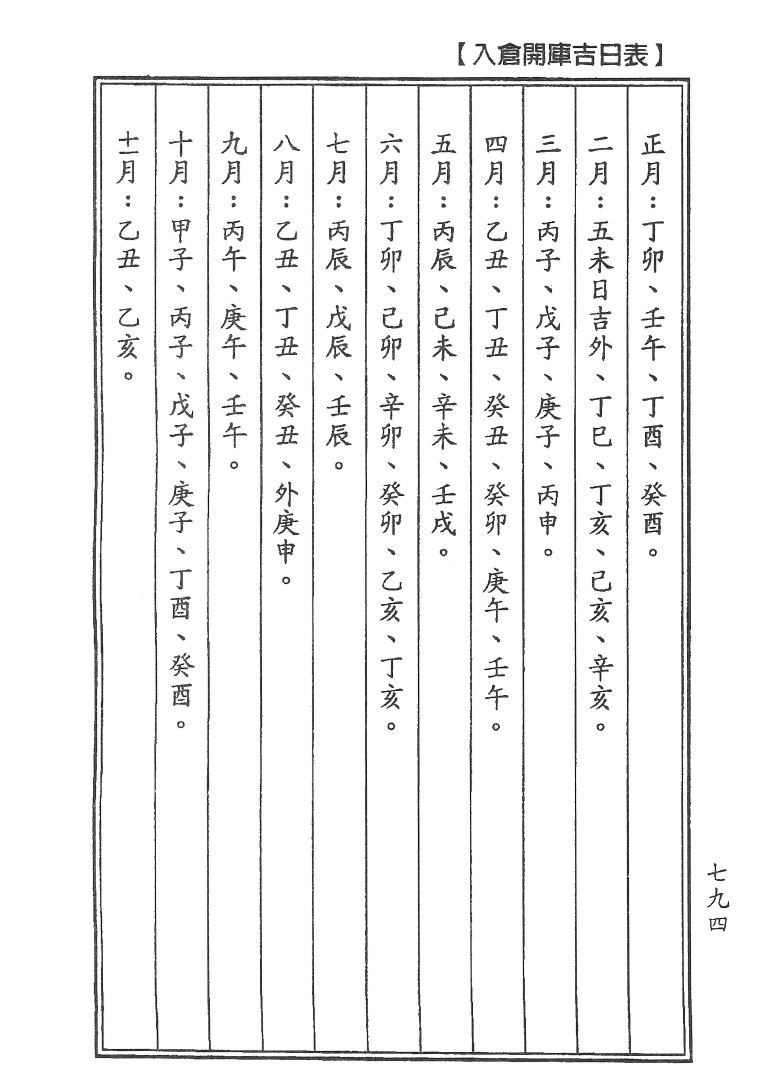 【入倉開庫吉日表】
正月：丁卯、壬午、丁酉、癸酉。
二月：五未日吉外、丁巳、丁亥、己亥、辛亥。
三月：丙子、戊子、庚子、丙申。
四月：乙丑、丁丑、癸丑、癸卯、庚午、壬午。
五月：丙辰、己未、辛未、壬戌。
六月：丁卯、己卯、辛卯、癸卯、乙亥、丁亥。
七月：丙辰、戊辰、壬辰。
八月：乙丑、丁丑、癸丑、外庚申。
九月：丙午、庚午、壬午。
十月：甲子、丙子、戊子、庚子、丁酉、癸酉。
十一月：乙丑、乙亥。
七九四